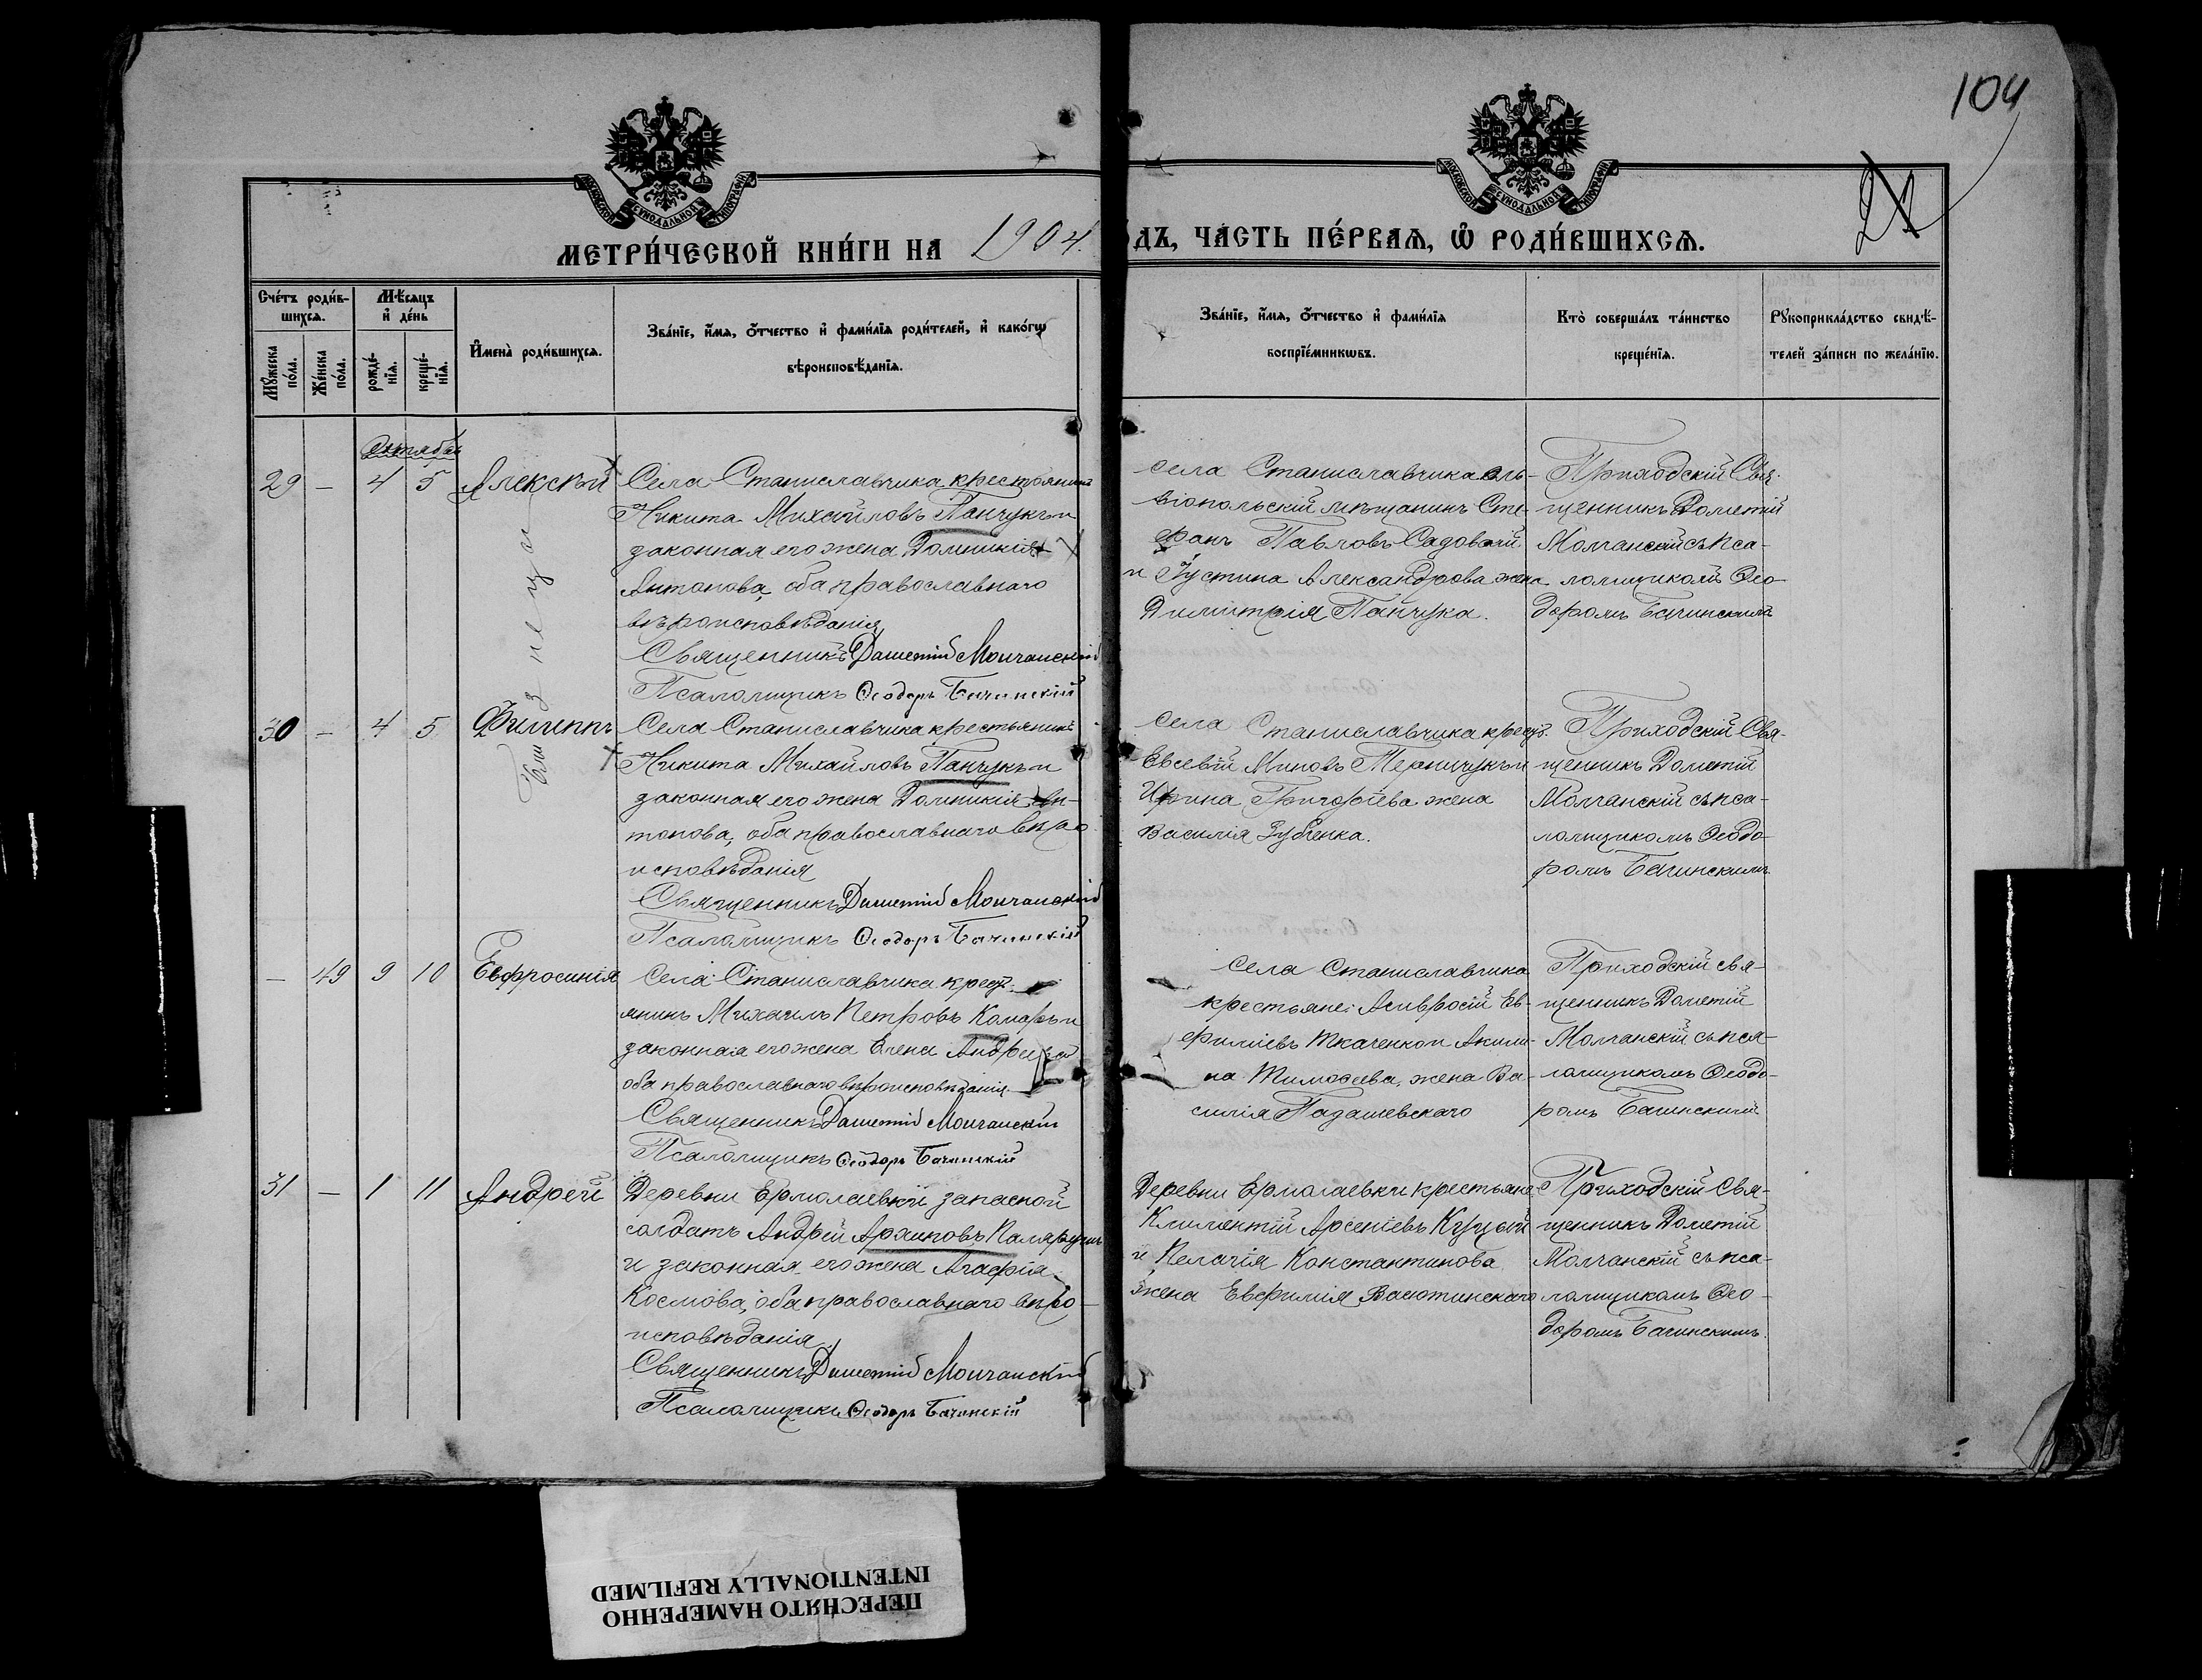 104
МОСКОВСКОЙ СѴНОДАЛЬНОЙ ТИПОГРАФІИ
МОСКОВСКОЙ СѴНОДАЛЬНОЙ ТИПОГРАФІИ
МЕТРИ́ЧЕСКОЙ КНИ́ГИ НА 1904.
ѺДЪ, ЧА́СТЬ ПЕ́РВАѦ, Ѽ РОДИ́ВШИХСѦ.
Сче́тъ роди́в-
шихсѧ.
Мѣ́сѧцъ
и҆ де́нь
Мꙋ́жеска
по́ла.
Же́нска
по́ла.
рожде́-
нїѧ.
креще́-
нїѧ.
И҆мена̀ роди́вшихсѧ.
Зва́нїе, и҆́мѧ, ѻ҆́тчество и҆ фами́лїѧ роди́телей, и҆ како́гѡ
вѣроисповѣ́данїѧ.
Зва́нїе, и҆́мѧ, ѻ҆́тчество и҆ фами́лїѧ
воспрїе́мникѡвъ.
Кто̀ соверша́лъ та́инство
креще́нїѧ.
Рꙋкоприкла́дство свидѣ́-
телей за́писи по жела́нїю.
Октябрь
29 — 4 5 Алексѣй
Села Станиславчика крестьянинъ
Никита Михайловъ Панчукъ и
законная его жена Домникія
Антонова, оба православнаго
вѣроисповѣданія
Священникъ Дометій Молчанскій
Псаломщикъ Ѳеодоръ Бачинскій
села Станиславчика оль-
віопольскій мѣщанинъ Сте-
фанъ Павловъ Садовый
и Іустина Александрова жена
Димитрія Панчука.
Приходскій Свя-
щенникъ Дометій
Молчанскій съ пса-
ломщикомъ Ѳео-
доромъ Бачинскимъ
Близнецы
30 — 4 5 Филиппъ
Села Станиславчика крестьянинъ
Никита Михайловъ Панчукъ и
законная его жена Домникія Ан-
тонова, оба православнаго вѣро-
исповѣданія
Священникъ Дометій Молчанскій
Псаломщикъ Ѳеодоръ Бачинскій
Села Станиславчика крест.
Евсевій Миновъ и
Ирина Григоріева жена
Василія Зубченка.
Приходскій Свя-
щенникъ Дометій
Молчанскій съ пса-
ломщикомъ Ѳеодо-
ромъ Бачинскимъ
— 49 9 10 Евфросинія
Села Станиславчика крест-
янинъ Михаилъ Петровъ Комаръ и
законная его жена Елена Андреева
оба православнаго вѣроисповѣданія.
Священникъ Дометій Молчанскій
Псаломщикъ Ѳеодоръ Бачинскій
Села Станиславчика
крестьяне: Амвросій Ев-
фиміевъ Ткаченко и Акили-
на Тимоѳеева, жена Ва-
силія
Приходскій свя-
щенникъ Дометій
Молчанскій съ пса-
ломщикомъ Ѳеодо-
ромъ Бачинскимъ
31 — 1 11 Андрей
Деревни Ермолаевки запасной
солдатъ Андрей Архиповъ
и законная его жена Агафія
Космова, оба православнаго вѣро-
исповѣданія
Священникъ Дометій Молчанскій
Псаломщикъ Ѳеодоръ Бачинскій
Деревни Ермолаевки крестьяне
Климентій Арсеніевъ Куцый
и Пелагія Константинова
жена Евфимія Васютинскаго
Приходскій Свя-
щенникъ Дометій
Молчанскій съ пса-
ломщикомъ Ѳео-
доромъ Бачинскимъ.
ПЕРЕСНЯТО НАМЕРЕННО
INTENTIONALLY REFILMED